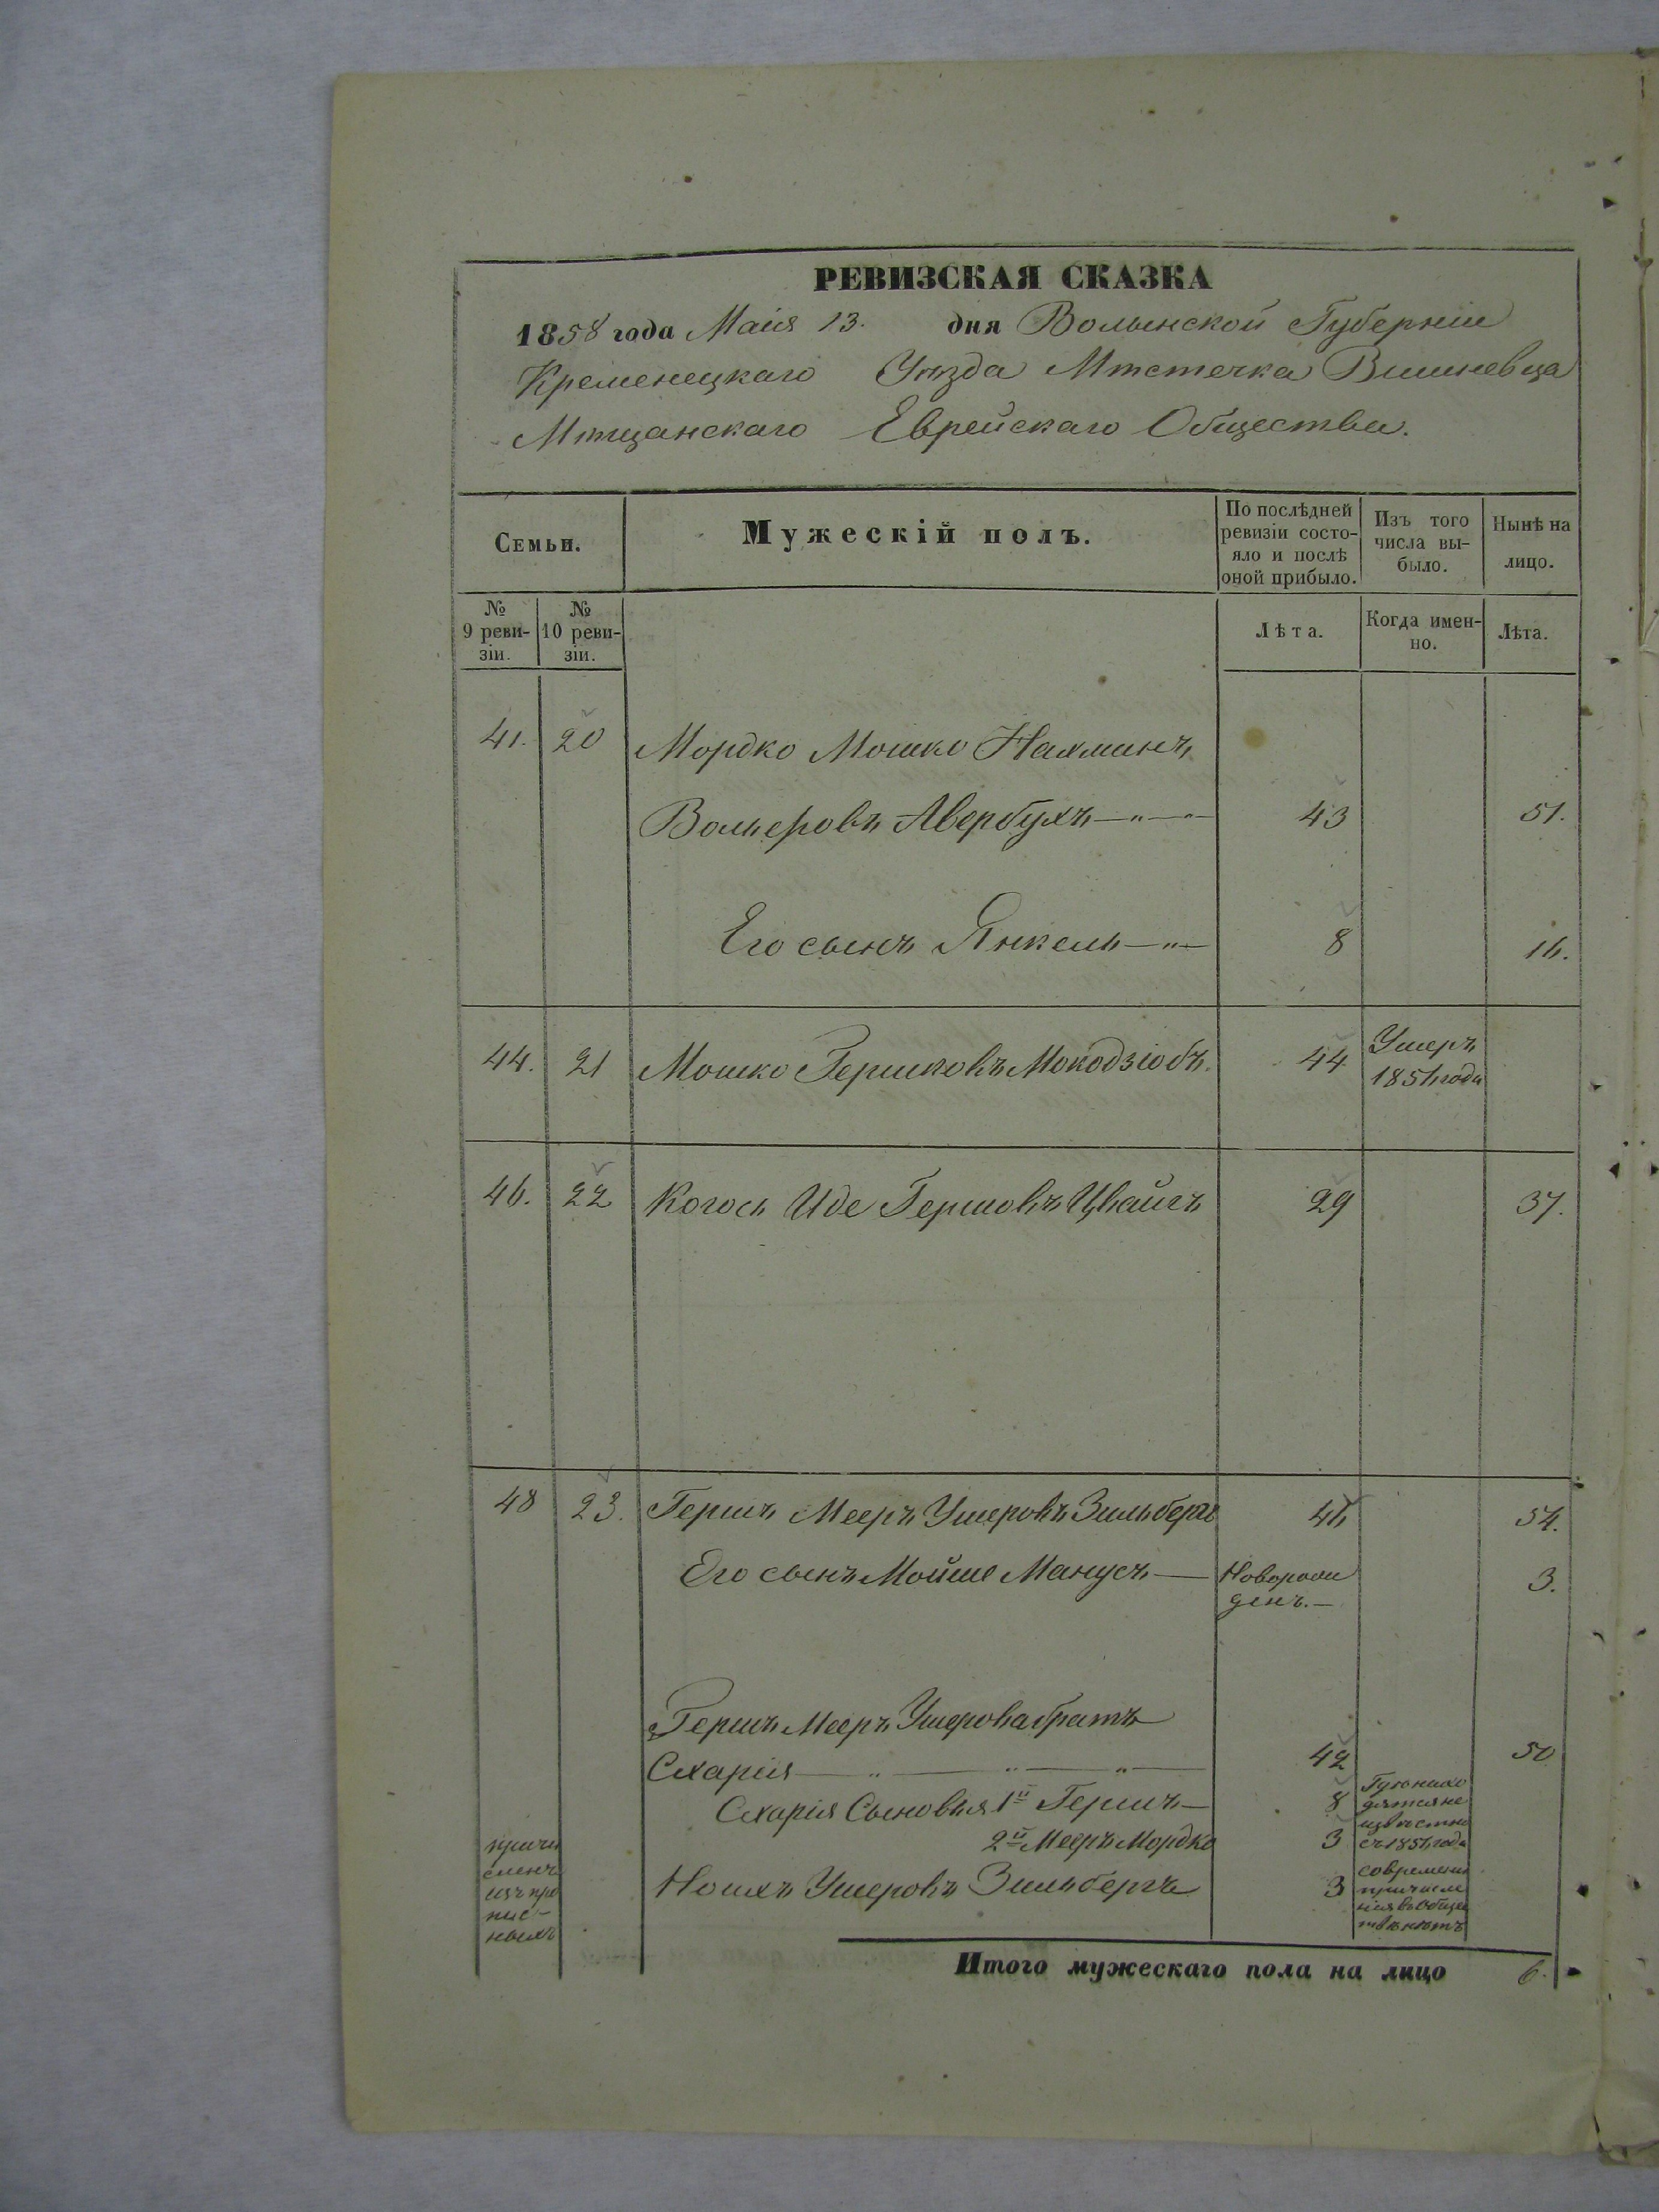 РЕВИЗСКАЯ СКАЗКА
1858 года Маія 13. дня Волынской Губерніи
Кременецкаго Уѣзда Мѣстечка Вишневца
Мѣщанскаго Еврейскаго Общества.
Семьи.
Мужескій полъ.
По послѣдней ревизіи состо-
яло и послѣ оной прибыло.
Изъ того числа вы-
было.
Нынѣ на лицо.
№ 9 реви-
зіи.
№ 10 реви-
зіи.
Лѣта.
Когда имен-
но.
Лѣта.
41. 20 Мордко Мошко Нахманъ
Вольеровъ Авербухъ 43 51.
Его сынъ Янкель 8 16.
44. 21 Мошко Гершковъ Мокодзіобъ. 44 Умеръ
1856 года
46. 22 Когось Иде Гершовъ Цвайгъ 29 37.
48 23. Гершъ Мееръ Ушеровъ Зильбергъ 46 54.
Его сынъ Мойше Манусъ — Новорож
денъ. — 3.
Гершъ Мееръ Ушерова братъ
Схарія 42 50
Схарія Сыновья 1й Гершъ — 8
2й Мееръ Мордко 3
Ноихъ Ушеровъ Зильбергъ 3
находятся не
извѣстно
съ 1856 года
современи
причисле
нія в Общес
твѣ нѣтъ
причи
сленъ
изъ про
пис-
ныхъ
Итого мужескаго пола на лицо 6.